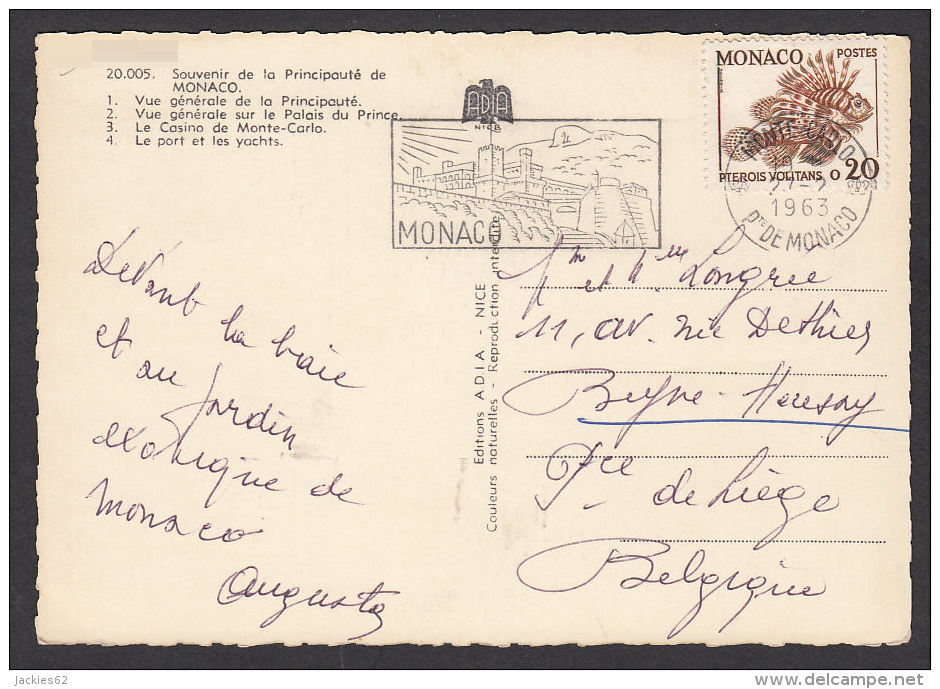 20.005. Souvenir de la Principauté de
MONACO.
1. Vue générale de la Principauté.
2. Vue générale sur le Palais du Prince.
3. Le Casino de Monte-Carlo.
4. Le port et les yachts.
ADIA
NICE
MONACO
MONACO POSTES
PTEROIS VOLITANS 0 20
MONTE-CARLO
1963
Pté DE MONACO
Devant la baie
et au jardin
exotique de
Monaco
Augusta
Editions ADIA - NICE
Couleurs naturelles - Reproduction interdite
Mr et Mme Longree
11, av. Nic Dethier
Beyne-Heusay
Pce de Liège
Belgique
Jackies62
www.delcampe.net